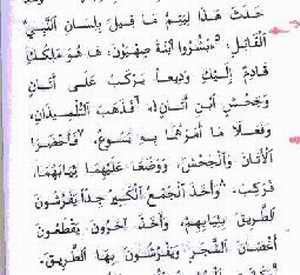 حَدَثَ هَذَا لِيَتِمَّ مَا قِيلَ بِلِسَانِ ٱلنَّبِيِّ
ٱلْقَائِلِ: ⁵«بَشِّرُوا ٱبْنَةَ صِهْيَوْنَ: هَا هُوَ مَلِكُكِ
قَادِمٌ إِلَيْكِ وَدِيعاً يَرْكَبُ عَلَى أَتَانٍ
وَجَحْشٍ ٱبْنِ أَتَانٍ!» ⁶فَذَهَبَ ٱلتِّلْمِيذَانِ،
وَفَعَلَا مَا أَمَرَهُمَا بِهِ يَسُوعُ، ⁷فَأَحْضَرَا
ٱلْأَتَانَ وَٱلْجَحْشَ، وَوَضَعَا عَلَيْهِمَا ثِيَابَهُمَا،
فَرَكِبَ. ⁸وَأَخَذَ ٱلْجَمْعُ ٱلْكَبِيرُ جِدّاً يَفْرُشُونَ
ٱلطَّرِيقَ بِثِيَابِهِمْ، وَأَخَذَ آخَرُونَ يَقْطَعُونَ
أَغْصَانَ ٱلشَّجَرِ وَيَفْرُشُونَ بِهَا ٱلطَّرِيقَ.